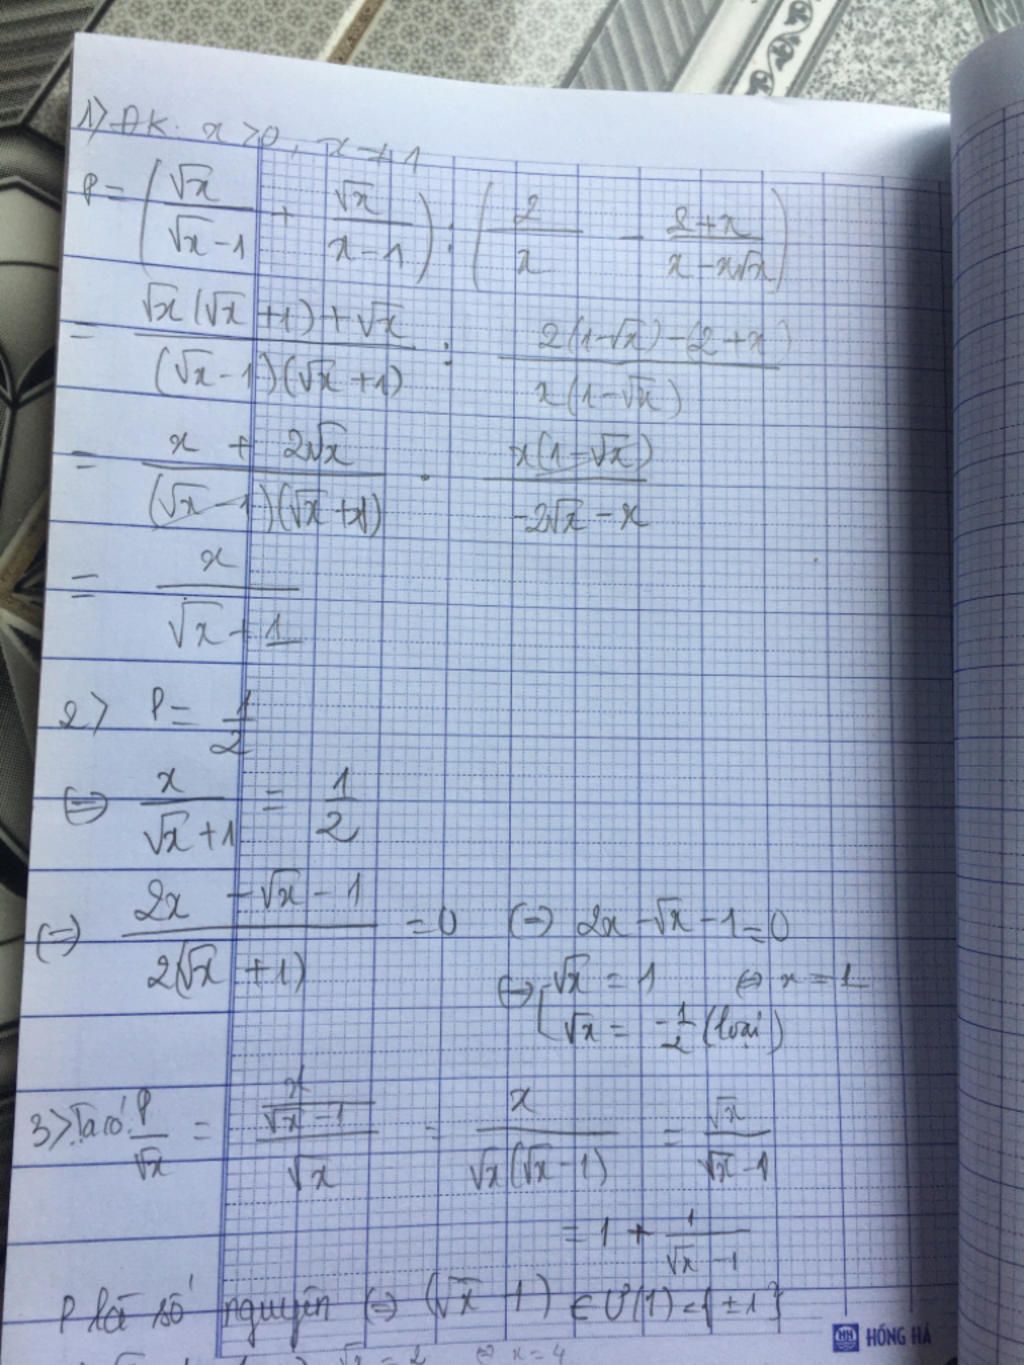 1> ĐK: x > 0, x ≠ 1
P = (√x/(√x - 1) + √x/(x - 1)) : (2/x - (2 + x)/(x - x√x))
= (√x(√x + 1) + √x)/((√x - 1)(√x + 1)) : (2(1 - √x) - (2 + x))/(x(1 - √x))
= (x + 2√x)/((√x - 1)(√x + 1)) . x(1 - √x)/(-2√x - x)
= x/(√x + 1)
2> P = 1/2
⇔ x/(√x + 1) = 1/2
⇔ (2x - √x - 1)/(2(√x + 1)) = 0 ⇔ 2x - √x - 1 = 0
⇔ [√x = 1 ⇔ x = 1
√x = -1/2 (loại)
3> Ta có: P/√x = (x/(√x - 1))/√x = x/(√x(√x - 1)) = √x/(√x - 1)
= 1 + 1/(√x - 1)
P là số nguyên ⇔ (√x - 1) ∈ Ư(1) = {±1}
√x = 2 ⇔ x = 4
HH HỒNG HÀ